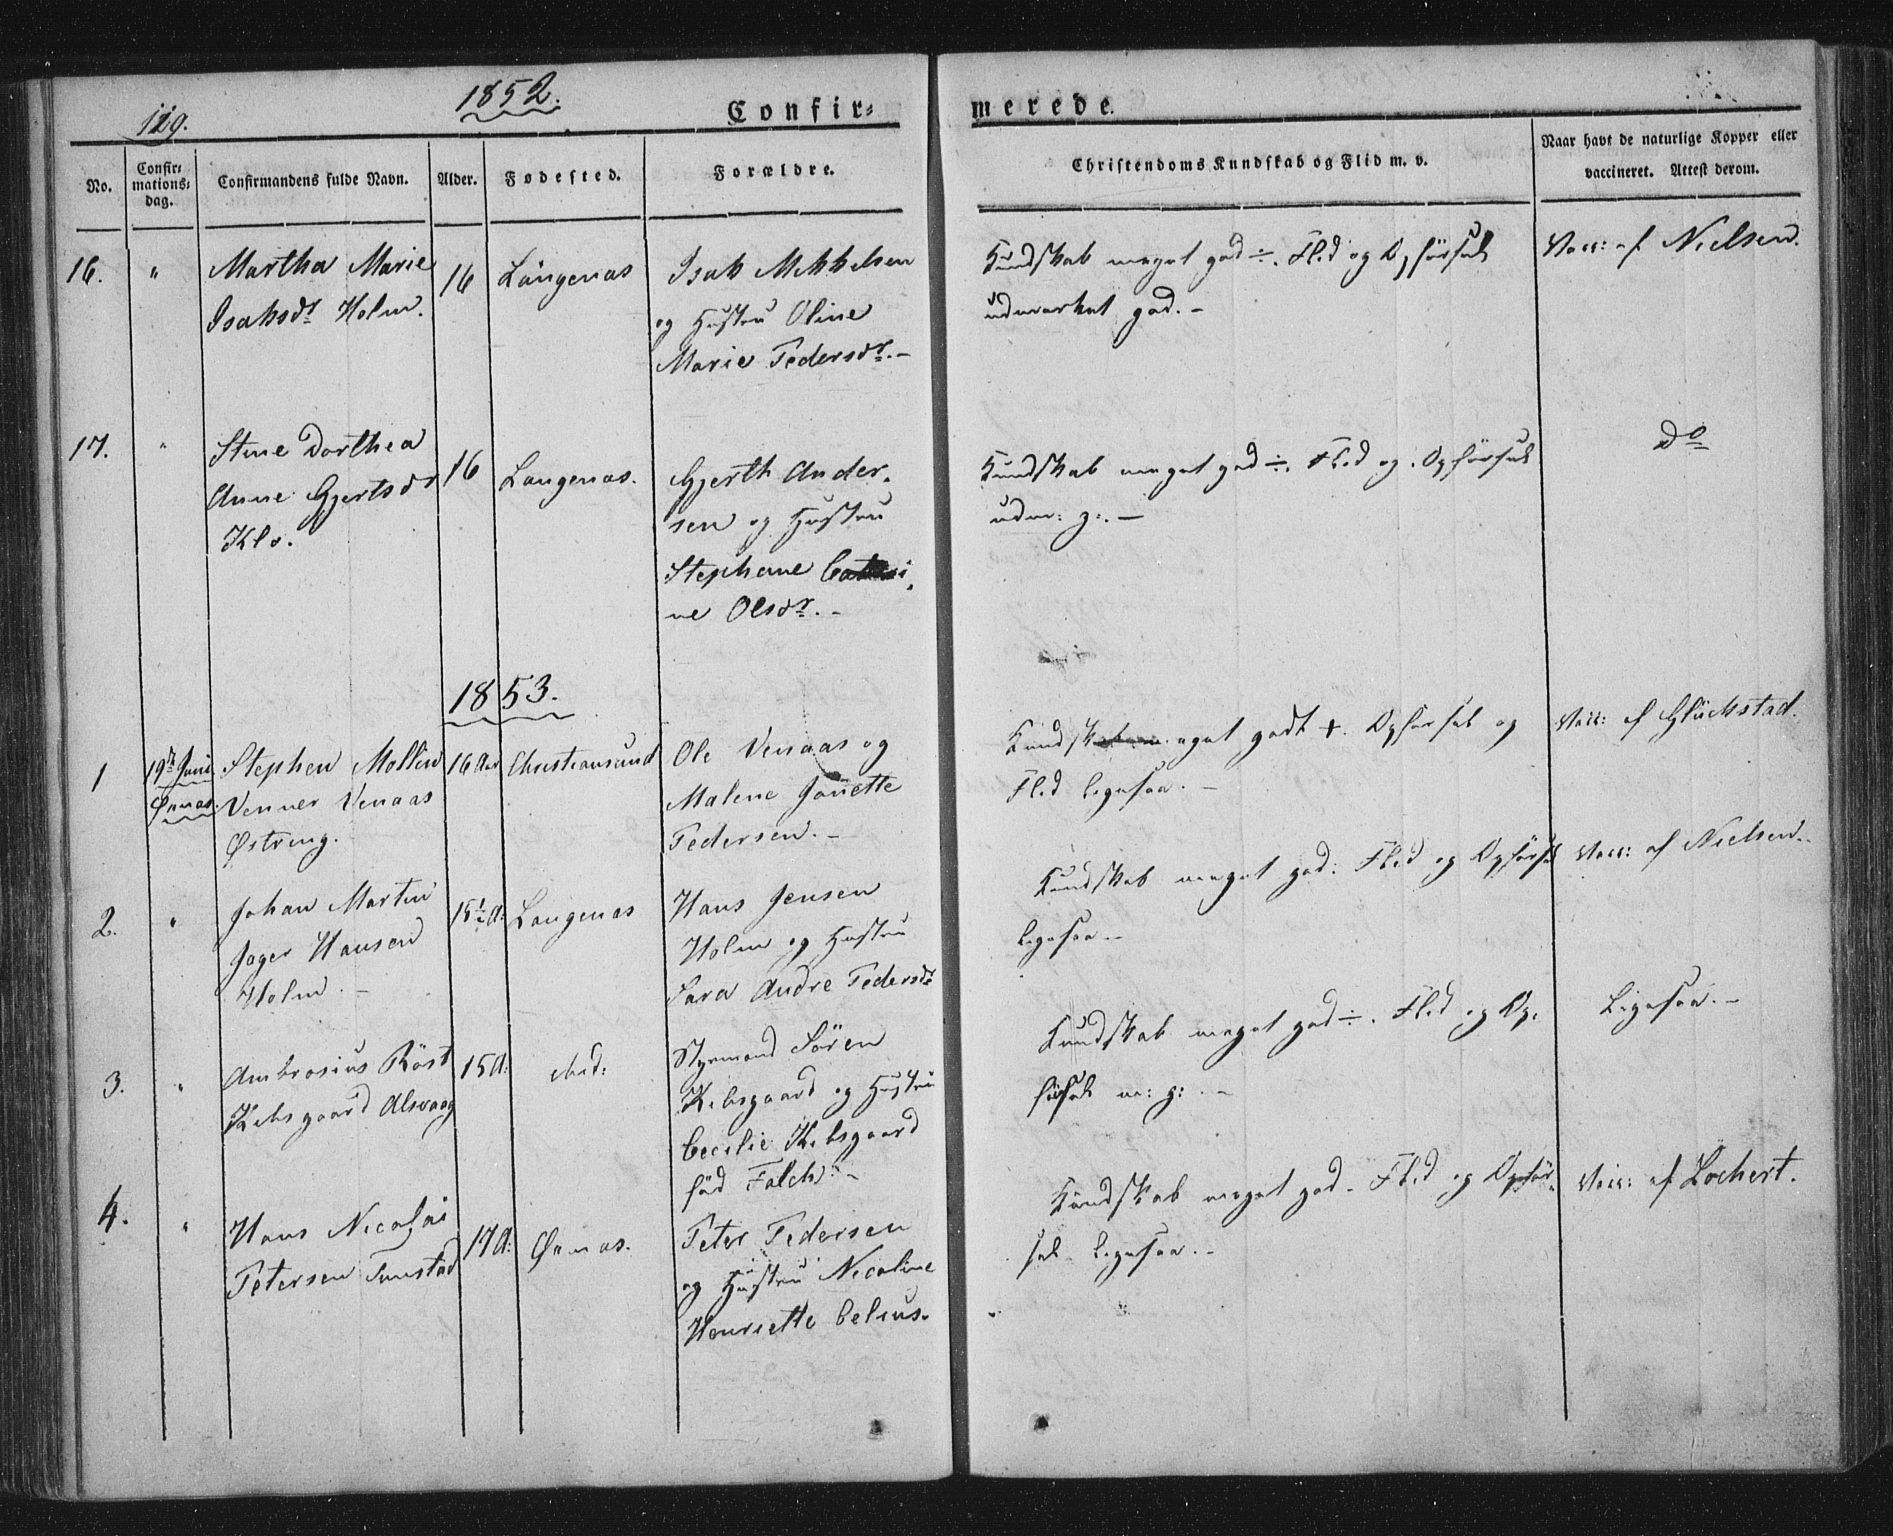 129.
1852.
Confir=
merede.
No.
Confir=
mations=
dag.
Confirmandens fulde Navn.
Alder.
Fødested.
Forældre.
Christendoms Kundskab og Flid m. v.
Naar havt de naturlige Kopper eller
vaccineret. Attest derom.
16.
"
Martha Marie
Isaksdr Holm.
16
Langenæs
Isak Mikkelsen
og Hustru Oline
Marie Pedersdr. -
Kundskab meget god ÷. Flid og Opførsel
udmærket god. -
Vacc: af Nielsen.
17.
"
Stine Dorthea
Anne Gjertsdr
Klo.
16
Langenæs.
Gjerth Ander-
sen og Hustru
Stephane
ne Olsdr. -
Kundskab meget god ÷. Flid og Opførsel
udm: g:. -
Do
1853.
1
19de Juni
Øxnæs.
Stephen Mollin
Venner Venaas
Østeng.
16 Aar
Christiansund
Ole Venaas og
Malene Janette
Pedersen. -
Kundskab meget godt +. Opførsel og
Flid ligesaa. -
Vacc: af Glückstad.
2.
"
Johan Martin
Jager Hansen
Holm. -
15½ A:
Langenæs
Hans Jensen
Holm og Hustru
Sara Andre Pedersdr
Kundskab meget god: Flid og Opførsel
ligesaa. -
Vacc: af Nielsen. -
3.
"
Ambrosius Röst
Kebsgaard Alsvaag
15 A:
ibid:
Styrmand Sören
Kebsgaard og Hustru
Cecilie Kebsgaard
föd Falch. -
Kundskab meget god ÷. Flid og Op-
førsel m: g: . -
Ligesaa. -
4.
"
Hans Nicolai
Petersen Tunstad
17 A:
Øxnæs.
Peter Pedersen
og Hustru Nicoline
Henriette Celius.
Kundskab meget god. Flid og Opfør-
sel ligesaa. -
Vacc: af Lochert.